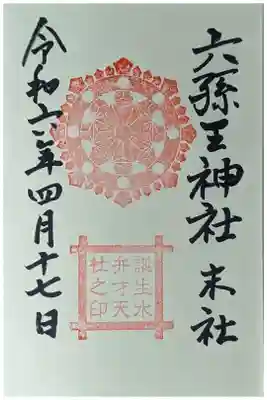 六孫王神社 末社
誕生水
弁才天
社之印
令和六年四月十七日